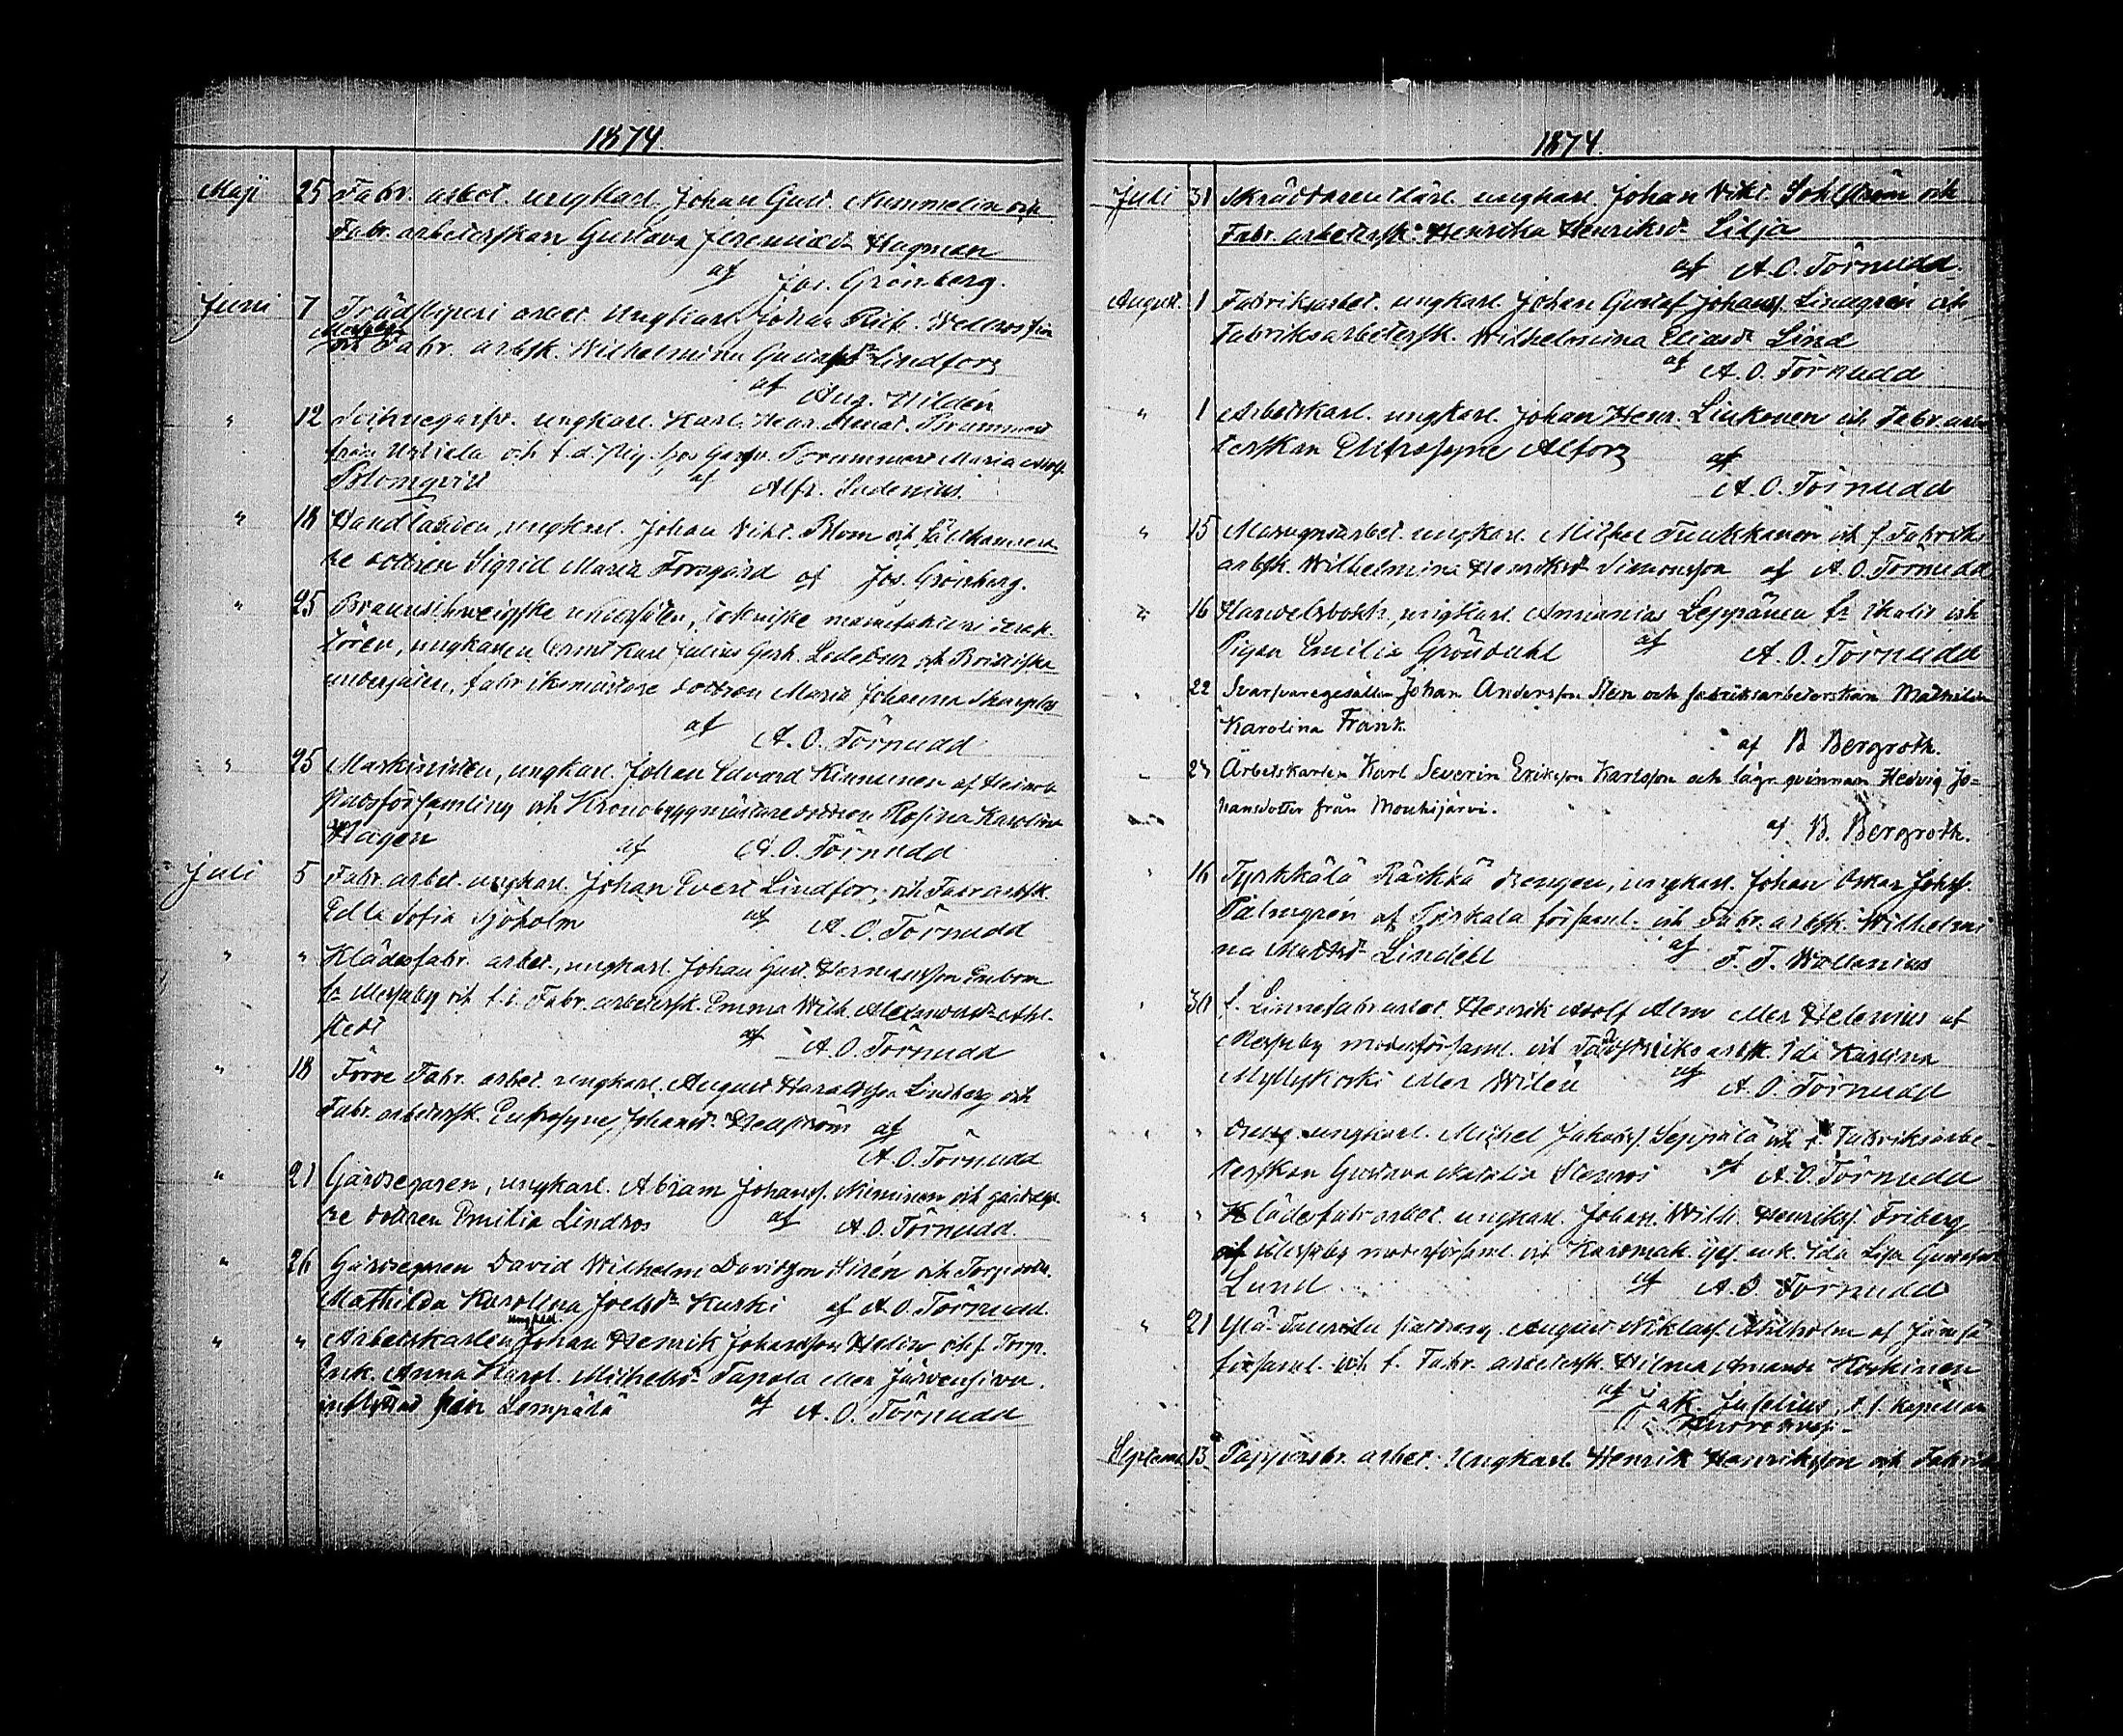 1874.
Maji 25 Fabr. arbet. ungkarl. Johan Gust. Nummelin och
Fabr. arbeterskan Gustava Jeremiæd. Hagman
af Jos. Grönberg.
Juni 7 Träsliperi arbet. Ungkarl. Johan
och Fabr. arbsk. Wilhelmina Gustafsdr Lindfors
af Aug. Hildén
" 12 ungkarl. Karl Henr. Renat. Brummer
från Urdiala och f.d. Pig. hos Brummer Maria Adolfs.
Blomqvist af Alfr. Indenius.
" 18 Handlanden, ungkarl. Johan Vikt. Blom och
re dottren Sigrid Maria Forsgård af Jos. Grönberg.
" 25 Braunschweigske undersåten, tekniske
tören, ungkarlen Ernst Karl Julius Gerh. Ledebur och Brittiska
undersåten, fabriksmästare dottren Maria Johanna Sharples
af A. O. Törnudd
" 25 Maskinisten, ungkarl. Johan Edvard Kinnunen af Heinola
stadsförsamling och Kronobyggmästaredottren Rosina Karolina
Hagen af A. O. Törnudd
Juli 5 Fabr. arbet. ungkarl. Johan Evert Lindfors, och Fabr arbsk.
Edla Sofia Sjöholm af A. O. Törnudd
" " Klädesfabr. arbet., ungkarl. Johan Gust. Hermansson Enbom
fr. Messuby och f.d. Fabr. arbetersk. Emma Wilh. Alexandersdr Ahl-
stedt af A. O. Törnudd
" 18 Förre Fabr. arbet. ungkarl. August Haraldsson Lindberg och
Fabr. arbetersk. Eufrosyne Johansdr. Hedström af
A. O. Törnudd
" 21 Gårdsegaren, ungkarl. Abram Johanss. Nieminen och gårdsega-
re dottren Emilia Lindros af A. O. Törnudd.
" 26 Gårdsegaren David Wilhelm Davidsson Hirén och Torp.
Mathilda Karolina Joelsdr Kuski af A. O. Törnudd
ungkarl.
" " Arbetskarlen Johan Henrik Johansson Helin och f. Torp.
Enk. Anna Karol. Michelsdr Tapola eller Järvensivu.
inflyttad från Lempälä af A. O. Törnudd
1874.
Juli 31 Skräddarenlärl. ungkarl. Johan Vikt. Sohlström och
Fabr. arbetersk. Henrika Henriksdr Lilja
af A. O. Törnudd.
August. 1 Fabriksarbet. ungkarl. Johan Gustaf Johanss. Lindgrén och
Fabriksarbetersk. Wilhelmina Eliasdr Lind
af A. O. Törnudd
" 1 Arbetskarl. ungkarl. Johan Henr. Linkonen och Fabr. arbe-
terskan Eufrosyne Alfors
af
A. O. Törnudd
" 15 Masugnsarbet. ungkarl. Michel Tuukkanen och f. Fabriks
arbsk. Wilhelmina Henriksdr Simonsson af A. O. Törnudd
" 16 Handelsbokh., ungkarl. Annanias Leppänen fr. Ikalis och
Pigan Emilia Gröndahl af A. O. Törnudd
" 22 Svarfvaregesällen Johan Andersson Sten och fabriksarbeterskan Mathilda
Karolina Frank.
af B Bergroth.
" Arbetskarlen Karl Severin Eriksson Karlsson och lägr. qvinnan Hedvig Jo=
hansdotter från Mouhijärvi.
af B. Bergroth.
" 16 Tyrkkälä Räikkä drengen, ungkarl. Johan Oskar Johss.
Palmgrén af Pirkala församl. och Fabr. arbsk. Wilhelmi
na Mattsdr Lindell af F. F. Wallenius
" 30 f. Linnefabr arbet. Henrik Adolf Alm eller Helenius af
Messuby moderförsaml. och arbsk. Ida Karolina
Myllykoski eller Wilén af A. O. Törnudd
" " Dreng. ungkarl. Michel Jakobss. Seppälä och f. Fabriksarbe-
terskan Gustava Natalia Stenroos af A. O. Törnudd
" " Klädesfabr arbet. ungkarl. Johan Wilh. Henrikss. Friberg
af Messuby moderförsaml. och enk. Ida Lisa Gustafsdr
Lund af A. O. Törnudd
" 21 August Niklass. Ahlholm af Jämsä
församl. och f. Fabr. arbetersk. Hilma Amanda Koskinen
af Jak. Juselius, t. f. Kapellan
i
Septemb. 13 Pappersbr. arbet. Ungkarl. Henrik Henriksson och Fabriks